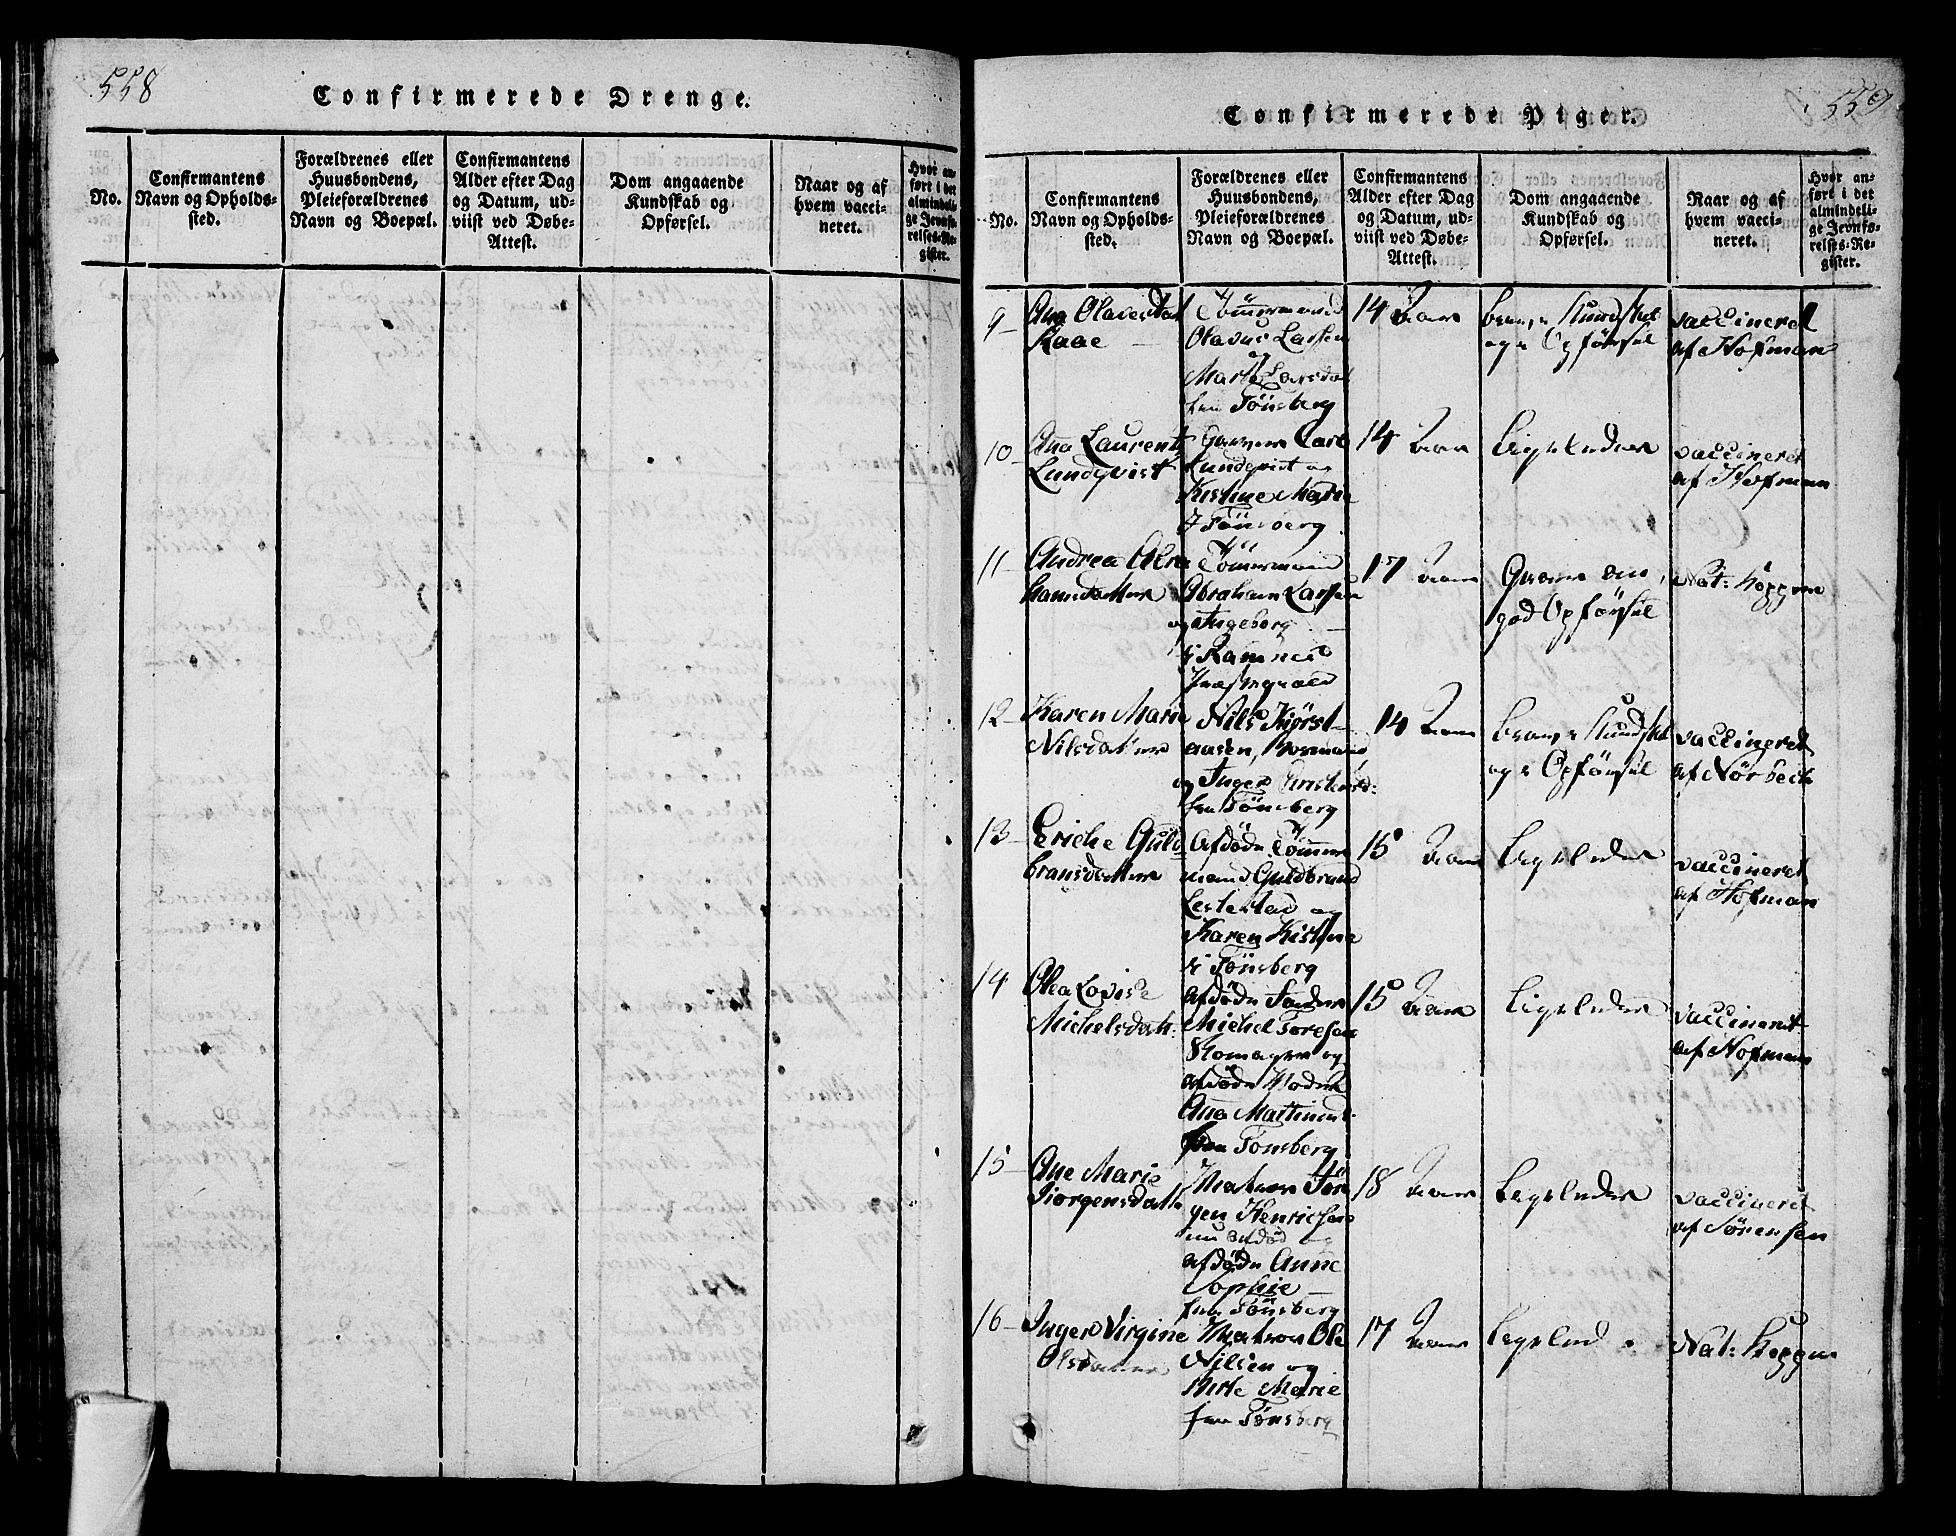 558
Confirmerede Drenge.
No.
Confirmantens
Navn og Opholds-
sted.
Forældrenes eller
Huusbondens,
Pleieforældrenes
Navn og Boepæl.
Confirmantens
Alder efter Dag
og Datum, ud-
viist ved Døbe-
Attest.
Dom angaaende
Kundskab og
Opførsel.
Naar og af
hvem vacci-
neret.
Hvor an-
ført i det
almindeli-
ge Jevnfø-
relses-Re-
gister.
559
Confirmerede Piger.
No.
Confirmantens
Navn og Opholds-
sted.
Forældrenes eller
Huusbondens,
Pleieforældrenes
Navn og Boepæl.
Confirmantens
Alder efter Dag
og Datum, ud-
viist ved Døbe-
Attest.
Dom angaaende
Kundskab og
Opførsel.
Naar og af
hvem vacci-
neret.
Hvor an-
ført i det
almindeli-
ge Jevnfø-
relses-Re-
gister.
9
Ana Olavesdat
Kaae
Tömermand
Olavus Larsen
og
Marte Larsdat
fra Tönsberg
14 Aar
Kundskab
og Opförsel
vaccineret
af Hofman
10
Ana Laurentz
Lundqvist
Carl
Lundqvist og
Kistine Marie
i Tönsberg
14 Aar
Ligeledes
vaccineret
af Hofman
11
Andrea Abra
hamsdatter
Tömermand
Abraham Larsen
og Ingeborg
i Ramnes
Præstegield
17 Aar
god Opförsel
Nat: Kopper
12
Karen Marie
Nilsdatter
Nils Kjörst-
aasen,
og Inger
fra Tönsberg
14 Aar
Kundskab
og Opförsel
vaccineret
af Nörbech
13
Eriche Guld
bransdatter
Afdöde Tömmer
mand Guldbrand
Lestestad og
Karen Kistine
i Tönsberg
15 Aar
Ligeledes
vaccineret
af Hofman
14
Olea Lovise
Michelsdatt:
Afdöde Fader
Michel Toresen
Komager og
afdöde Moder
Ana Martinusd:
fra Tonsberg
15 Aar
Ligeledes
vaccineret
af Hofman
15
Ane Marie
Jörgensdatt
Matros Jör
gen Henricsen
nu afdöd og
afdöde Anne
Sophie
fra Tönsberg
18 Aar
Ligeledes
vaccineret
af Sörensen
16
Inger Virgine
Olsdatter
Matros Ole
Nilsen og
Marie
fra Tönsberg
17 Aar
Ligeled
Nat: Kopper